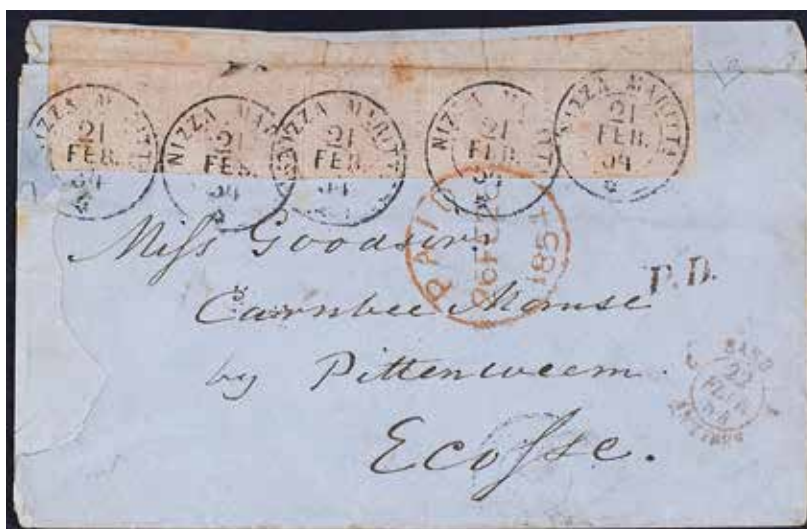 NIZZA MARITTA 21 FEB. 54
NIZZA MAR 21 FEB. 54
NIZZA MARITTA 21 FEB. 54
NIZZA MARITTA 21 FEB. 54
NIZZA MARITTA 21 FEB. 54
PAID 26 FE 26 1854
Miss Goodsirs
Carnbee Manse
P.D.
by Pittenweem.
SARD 23 FEVR 54
Ecosse.